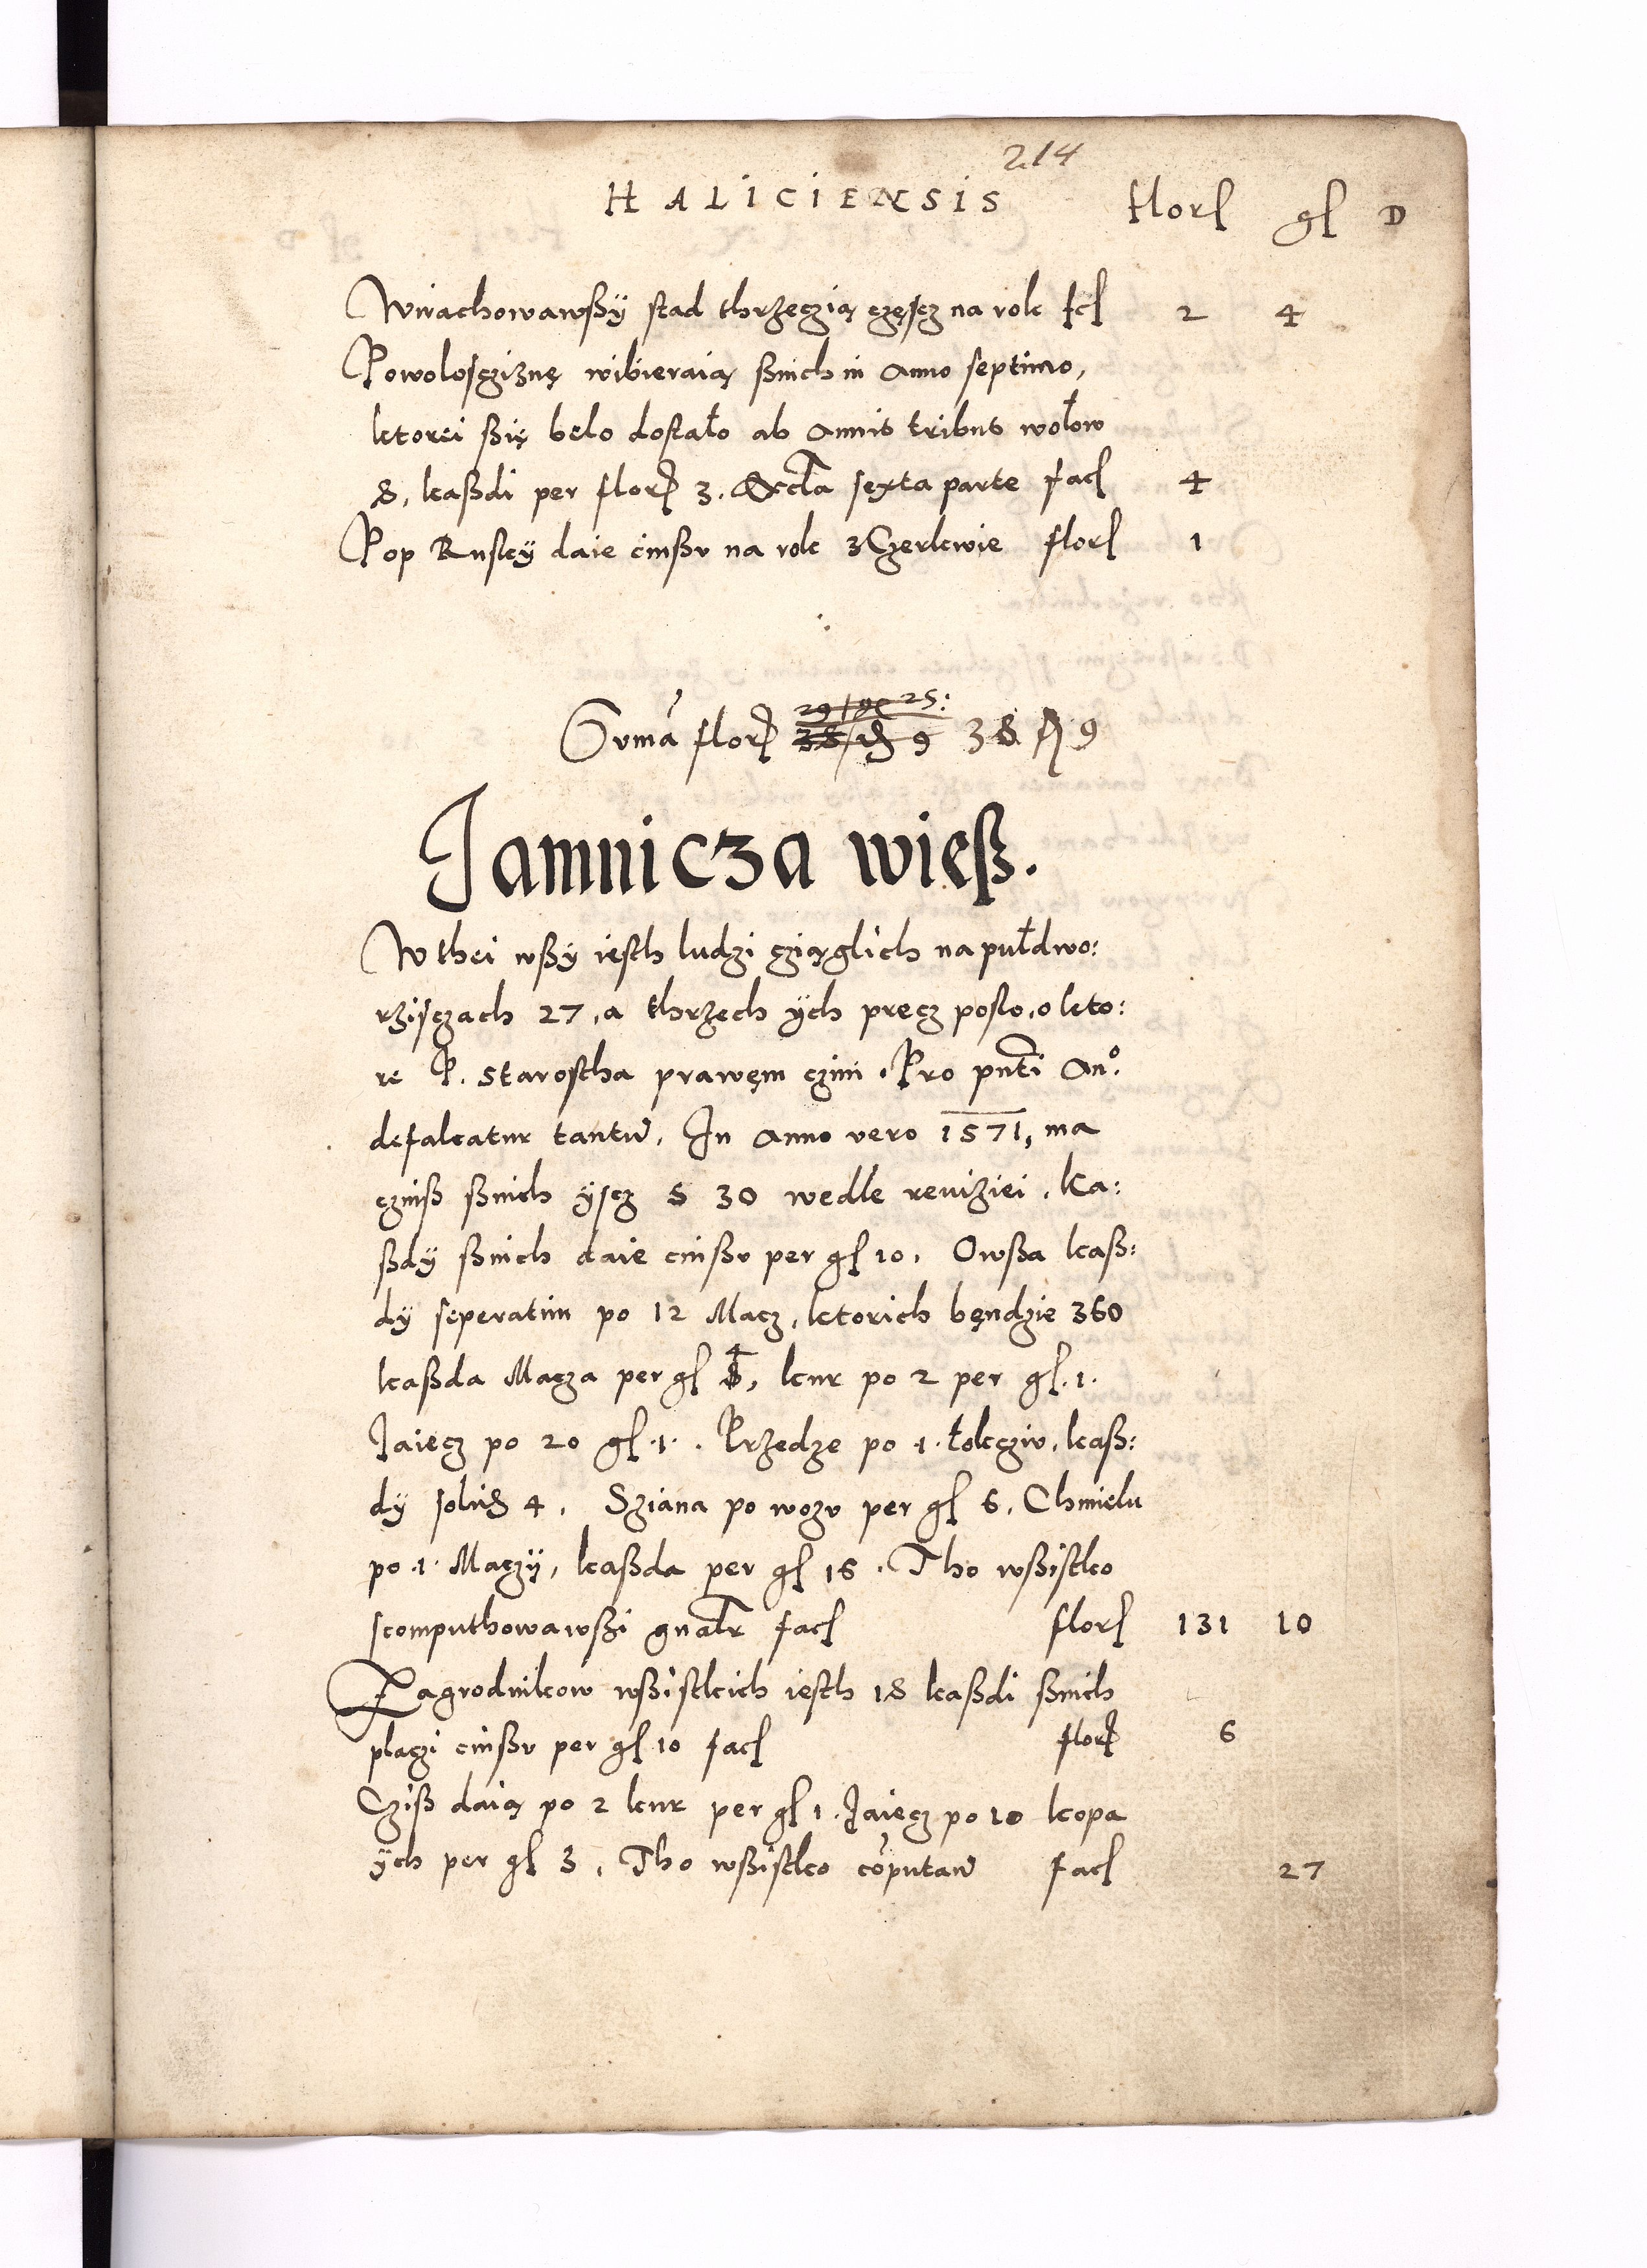 214
HALICIENSIS florſ gſ D
Wirachowawßÿ stad thrzeczią częscz na rok fcſ 2 4
Powoloscziznę wibieraią ßnich in Anno septimo,
ktorei ßię belo dostało ab Annis tribus wołow
8, kaßdi per florſ 3. sexta parte facſ 4
Pop Ruskÿ daie cinßv na rok zCzerkwie florſ 1
Suma florſ 38 9
Jamnicza wieß.
W thei wßÿ iesth ludzi cziąglich na pułdwo:
rzisczach 27, a thrzech ÿch precz posło, o kto:
re P. Staroscha prawęm czini. Pro pnti Anº:
defalcatur tantū, In Anno vero 1571, ma
czniß ßnich ÿscz S 30 wedle reuiziei, Ka:
ßdy ßnich daie cinßv per gſ 10. Owßa kaß:
dÿ seperatim po 12 Macz, ktorich będzie 360
kaßda Macza per gſ 4, kur po 2 per gſ. 1.
Jaiecz po 20 gſ. 1. Przedze po 1. tokcziv, kaß:
dÿ solid 4. Sziana po wozv per gſ 6, Chmielu
po 1. Maczÿ, kaßda per gſ 16. Tho wßistko
scomputhowawßi gnalr facſ florſ 131 10
Zagrodnikow wßistkich iesth 18 kaßdi ßnich
placzi cinßv per gſ 10 facſ florſ 6
Cziß daią po 2 kur per gſ 1. Jaiecz po 10 kopa
ÿch per gſ 3, Tho wßistko cōputaū facſ 27